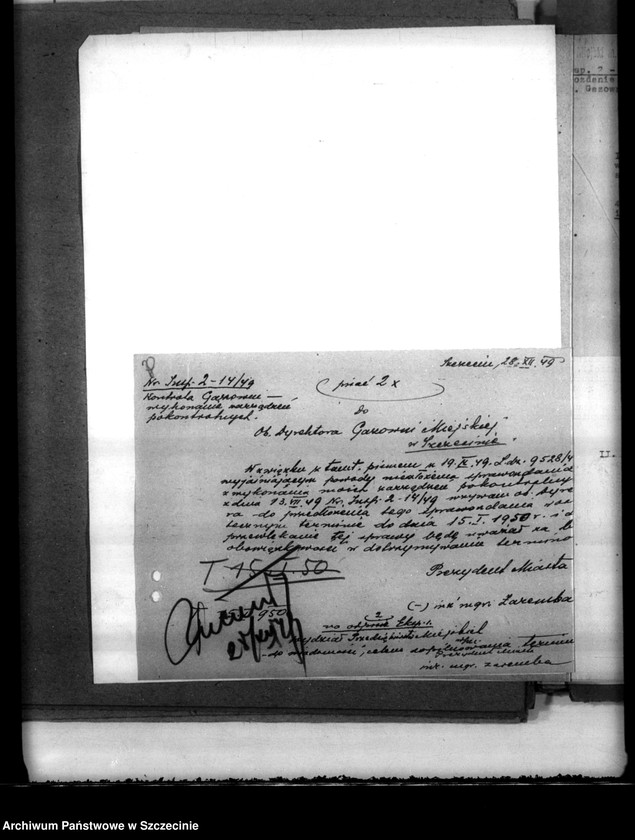 Szczecin, 28.XII.49
Nr. Insp. 2-14/49
Kontrola Gazowni –
wykonanie zarządzeń
pokontrolnych.
pisać 2 x
do
Ob. Dyrektora Gazowni Miejskiej
w Szczecinie
W związku z tamt. pismem z 19.IX.49. L.dz. 9528/4
wyjaśniającym powody niezłożenia sprawozdania
z wykonania moich zarządzeń pokontrolnych
z dnia 13.VII.49 Nr. Insp. 2-14/49 wzywam ob. Dyre
ra do przedłożenia tego sprawozdania
terminie do dnia 15.I.1950 r. i d
przewlekanie tej sprawy będę uważał za b
obowiązkowości w dotrzymywaniu terminó
T 15.I.50
Prezydent Miasta
(-) inż mgr. Zaremba
950
2
na odpisie Eksp. 1.
Wydział Przedsiębiorstw Miejskich
do wiadomości, celem dopilnowania terminu
Prezydent Miasta
inż. mgr. Zaremba
sp. 2 -
Gazow
II.
Archiwum Państwowe w Szczecinie